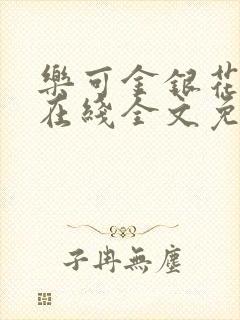 樂可金銀花
在綫全文免
子冉無塵